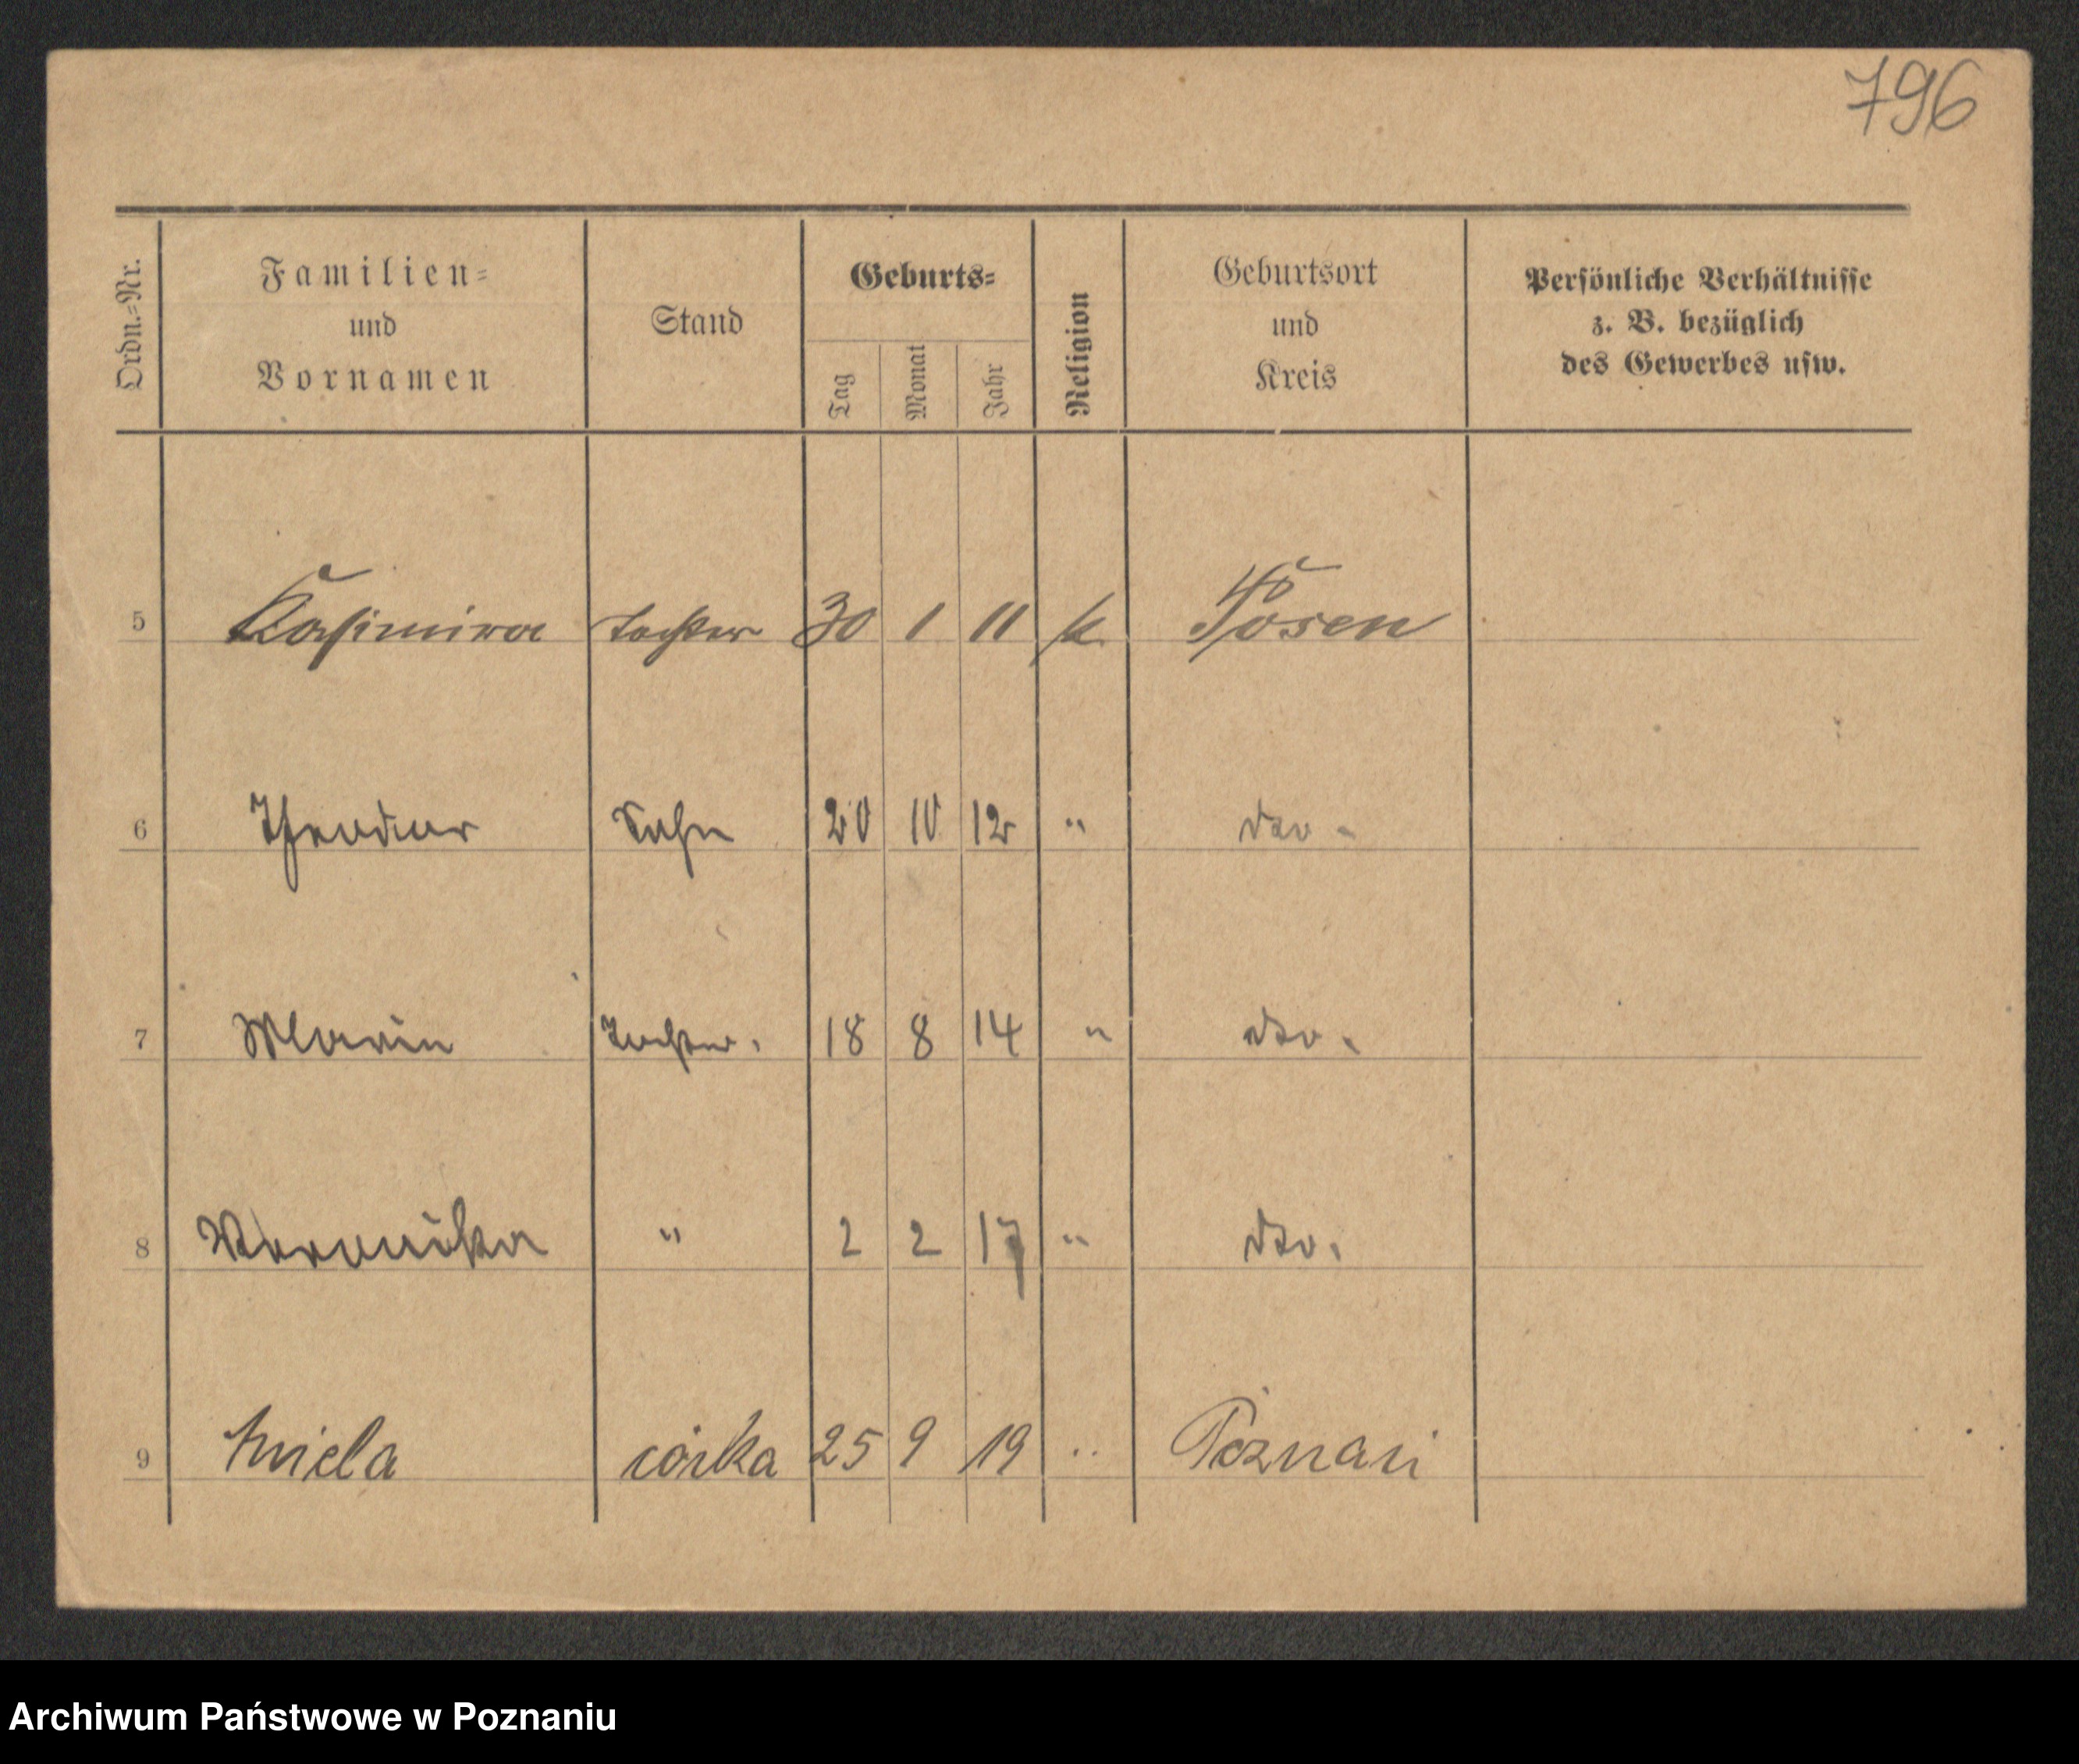 796
Ordn.=Nr. Familien= und Vornamen Stand Geburts= Tag Monat Jahr Religion Geburtsort und Kreis Persönliche Verhältnisse z. B. bezüglich des Gewerbes usw.
5 Kasimira Tochter 30 1 11 k. Posen
6 Theodor Sohn 20 10 12 " dto -
7 Maria Tochter. 18 8 14 " dto.
8 Veronika " 2 2 17 " dto.
9 Aniela córka 25 9 19 " Poznań
Archiwum Państwowe w Poznaniu